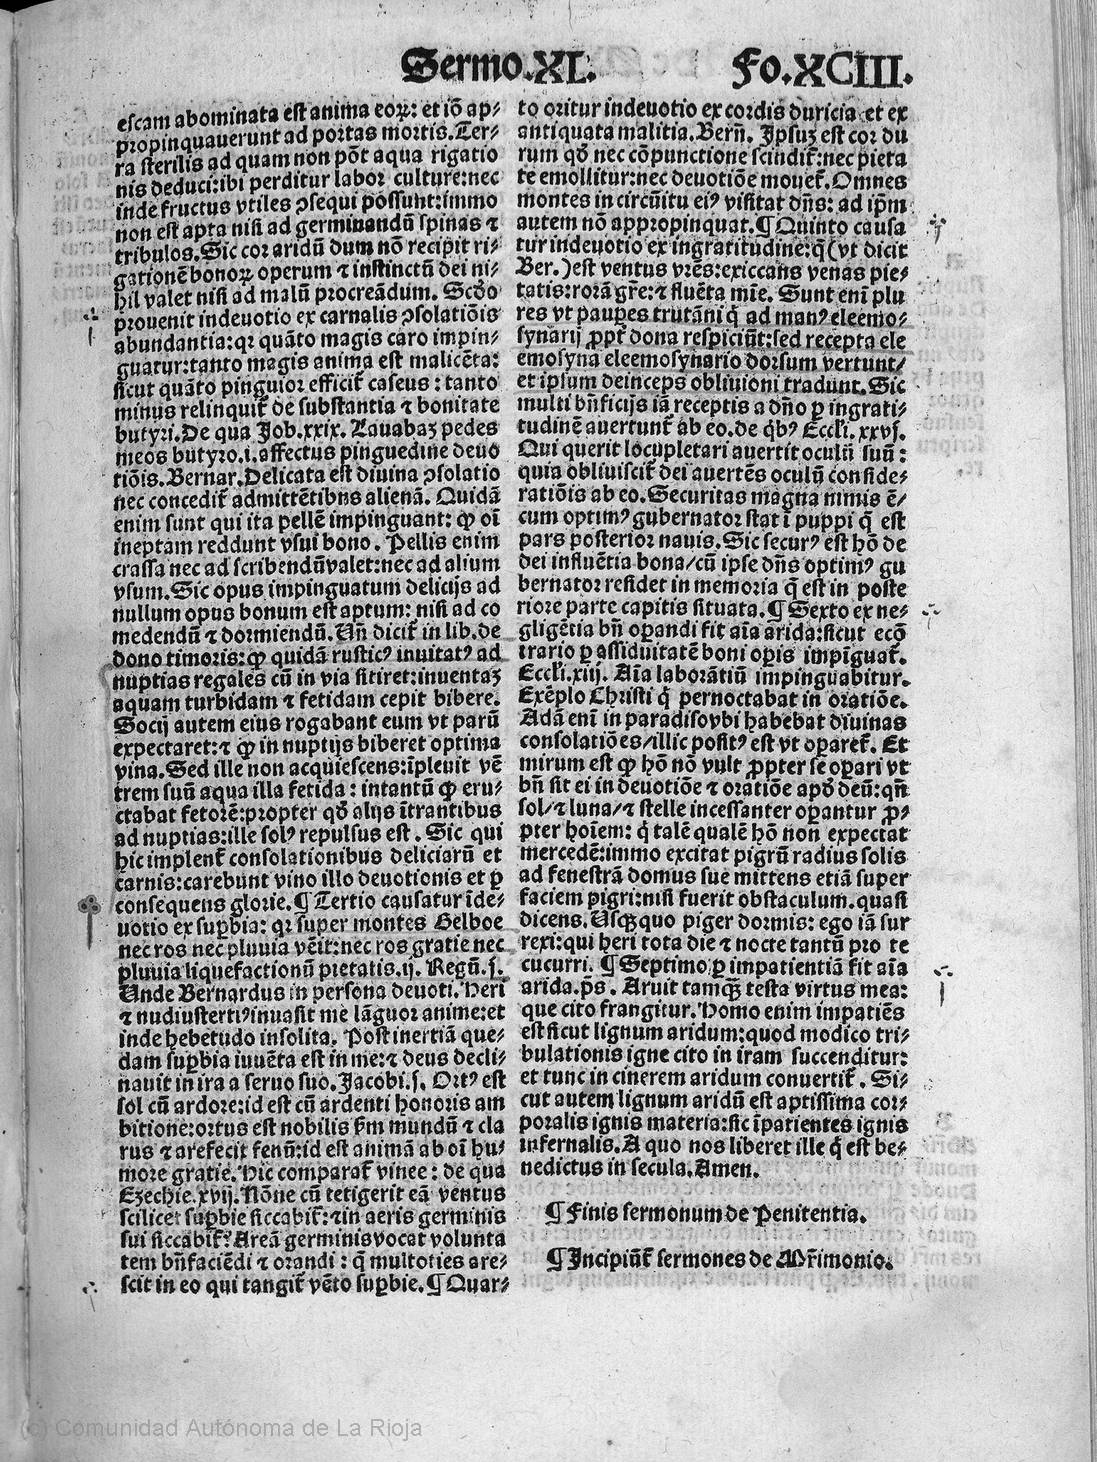 Sermo.XL. Fo.XCIII.
escam abominata est anima eoꝝ: et iō ap⸗
propinquauerunt ad portas mortis. Ter⸗
ra sterilis ad quam non pōt aqua rigatio
nis deduci: ibi perditur labor culture: nec
inde fructus vtiles ↄsequi possunt: immo
non est apta nisi ad germinandū spinas ⁊
tribulos. Sic cor aridū dum nō recipit ri⸗
gationē bonoꝝ operum ⁊ instinctū dei ni⸗
hil valet nisi ad malū procreādum. Scḋo
prouenit indeuotio ex carnalis ↄsolatiōis
abundantia: qꝛ quāto magis caro impin⸗
guatur: tanto magis anima est malicēta:
sicut quāto pinguior efficit᷑ caseus: tanto
minus relinquit᷑ de substantia ⁊ bonitate
butyri. De qua Job.xxix. Lauabaꝫ pedes
meos butyro.i. affectus pinguedine deuo
tiōis. Bernar. Delicata est diuina ↄsolatio
nec concedit᷑ admittētibus alienā. Quidā
enim sunt qui ita pellē impinguant: ꝙ oī
ineptam reddunt vsui bono. Pellis enim
crassa nec ad scribendū valet: nec ad alium
vsum. Sic opus impinguatum delicijs ad
nullum opus bonum est aptum: nisi ad co
medendū ⁊ dormiendū. Uñ dicit᷑ in lib. de
dono timoris: ꝙ quidā rusticꝰ inuitatꝰ ad
nuptias regales cū in via sitiret: inuentaꝫ
aquam turbidam ⁊ fetidam cepit bibere.
Socij autem eius rogabant eum vt parū
expectaret: ⁊ ꝙ in nuptijs biberet optima
vina. Sed ille non acquiescens: īpleuit vē
trem suū aqua illa fetida: intantū ꝙ eru⸗
ctabat fetorē: propter qḋ alijs ītrantibus
ad nuptias: ille solꝰ repulsus est. Sic qui
hic implent᷑ consolationibus deliciarū et
carnis: carebunt vino illo deuotionis et ꝑ
consequens glorie. ¶ Tertio causatur īde⸗
uotio ex suꝑbia: qꝛ super montes Gelboe
nec ros nec pluuia vēit: nec ros gratie nec
pluuia liquefactionū pietatis.ij. Regū.j.
Unde Bernardus in persona deuoti. Heri
⁊ nudiustertiꝰ inuasit me lāguor anime: et
inde hebetudo insolita. Post inertiā que⸗
dam suꝑbia iuuēta est in me: ⁊ deus decli⸗
nauit in ira a seruo suo. Jacobi.j. Ortꝰ est
sol cū ardore: id est cū ardenti honoris am
bitione: ortus est nobilis ẜm mundū ⁊ cla
rus ⁊ arefecit fenū: id est animā ab oī hu⸗
more gratie. Hic comparat᷑ vinee: de qua
Ezechie.xvij. Nōne cū tetigerit eā ventus
scilicet suꝑbie siccabit᷑: ⁊ in aeris germinis
sui siccabit᷑? Areā germinis vocat volunta
tem bñfaciēdi ⁊ orandi: q̄ multoties are⸗
scit in eo qui tangit᷑ vēto suꝑbie. ¶ Quar⸗
to oritur indeuotio ex cordis duricia et ex
antiquata malitia. Berñ. Ipsuꝫ est cor du
rum qḋ nec cōpunctione scindit᷑: nec pieta
te emollitur: nec deuotiōe mouet᷑. Omnes
montes in circūitu eiꝰ visitat dñs: ad ip̄m
autem nō appropinquat. ¶ Quinto causa
tur indeuotio ex ingratitudine: q̄ (vt dicit
Ber.) est ventus vrēs: exiccans venas pie⸗
tatis: rorā gr̄e: ⁊ fluēta mīe. Sunt enī plu
res vt pauꝑes trutāni q̇ ad manꝰ eleemo⸗
synarij ꝓpt᷑ dona respiciūt: sed recepta ele
emosyna eleemosynario dorsum vertunt/
et ipsum deinceps obliuioni tradunt. Sic
multi bñficijs iā receptis a dño ꝑ ingrati⸗
tudinē auertunt᷑ ab eo. de q̇bꝰ Eccłi.xxvj.
Qui querit locupletari auertit oculū suū:
quia obliuiscit᷑ dei auertēs oculū conside⸗
ratiōis ab eo. Securitas magna nimis ē/
cum optimꝰ gubernator stat ī puppi q̄ est
pars posterior nauis. Sic securꝰ est hō de
dei influētia bona/cū ipse dñs optimꝰ gu
bernator residet in memoria q̄ est in poste
riore parte capitis situata. ¶ Sexto ex ne⸗
gligētia bñ oꝑandi fit aīa arida: sicut ecō
trario ꝑ assiduitatē boni oꝑis impīguat᷑.
Eccłi.xiij. Aīa laborātiū impinguabitur.
Exēplo Christi q̇ pernoctabat in oratiōe.
Adā enī in paradiso vbi habebat diuinas
consolatiōes/illic positꝰ est vt oꝑaret᷑. Et
mirum est ꝙ hō nō vult ꝓpter se oꝑari vt
bñ sit ei in deuotiōe ⁊ oratiōe apḋ deū: qñ
sol/⁊ luna/⁊ stelle incessanter oꝑantur ꝓ⸗
pter hoīem: q̇ talē qualē hō non expectat
mercedē: immo excitat pigrū radius solis
ad fenestrā domus sue mittens etiā super
faciem pigri: nisi fuerit obstaculum. quasi
dicens. Usꝙquo piger dormis: ego iā sur
rexi: qui heri tota die ⁊ nocte tantū pro te
cucurri. ¶ Septimo ꝑ impatientiā fit aīa
arida. ps. Aruit tamꝙ̄ testa virtus mea:
que cito frangitur. Homo enim impatiēs
est sicut lignum aridum: quod modico tri⸗
bulationis igne cito in iram succenditur:
et tunc in cinerem aridum conuertit᷑. Si⸗
cut autem lignum aridū est aptissima cor⸗
poralis ignis materia: sic īpatientes ignis
infernalis. A quo nos liberet ille q̇ est be⸗
nedictus in secula. Amen.
¶ Finis sermonum de Penitentia.
¶ Incipiūt᷑ sermones de Mr̄imonio.
(c) Comunidad Autónoma de La Rioja